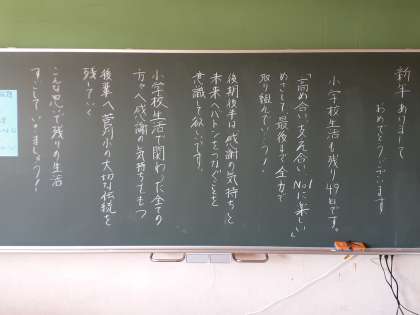 新年あけまして
おめでとうございます
小学校生活も残り49日です。
「高め合い、支え合い No.1に楽しい」
めざして最後まで全力で
取り組んでいこう!
後期後半は「感謝の気持ち」と
未来へバトンをつなぐことを
意識して欲しいです。
小学校生活で関わった全ての
方々へ感謝の気持ちをもつ
後輩へ菅刈小の大切な伝統を
残していく
こんな思いで残りの生活
すごしていきましょう!